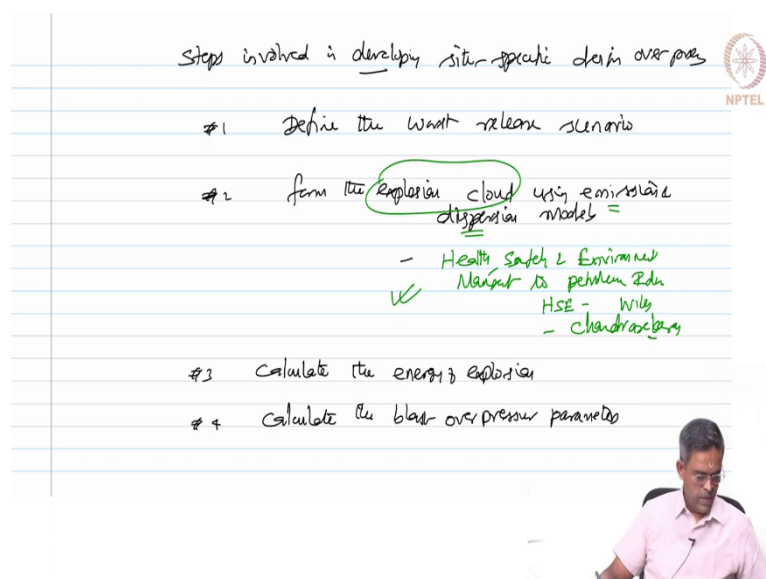 Steps involved in developing site-specific design over press
NPTEL
#1 Define the worst release scenario
#2 form the explosion cloud using emission &
dispersion models
- Health, Safety & Environment
Manget to petroleum Edn
HSE - Wiley
- Chandrasekaran
#3 Calculate the energy of explosion
#4 Calculate the blast overpressure parameters